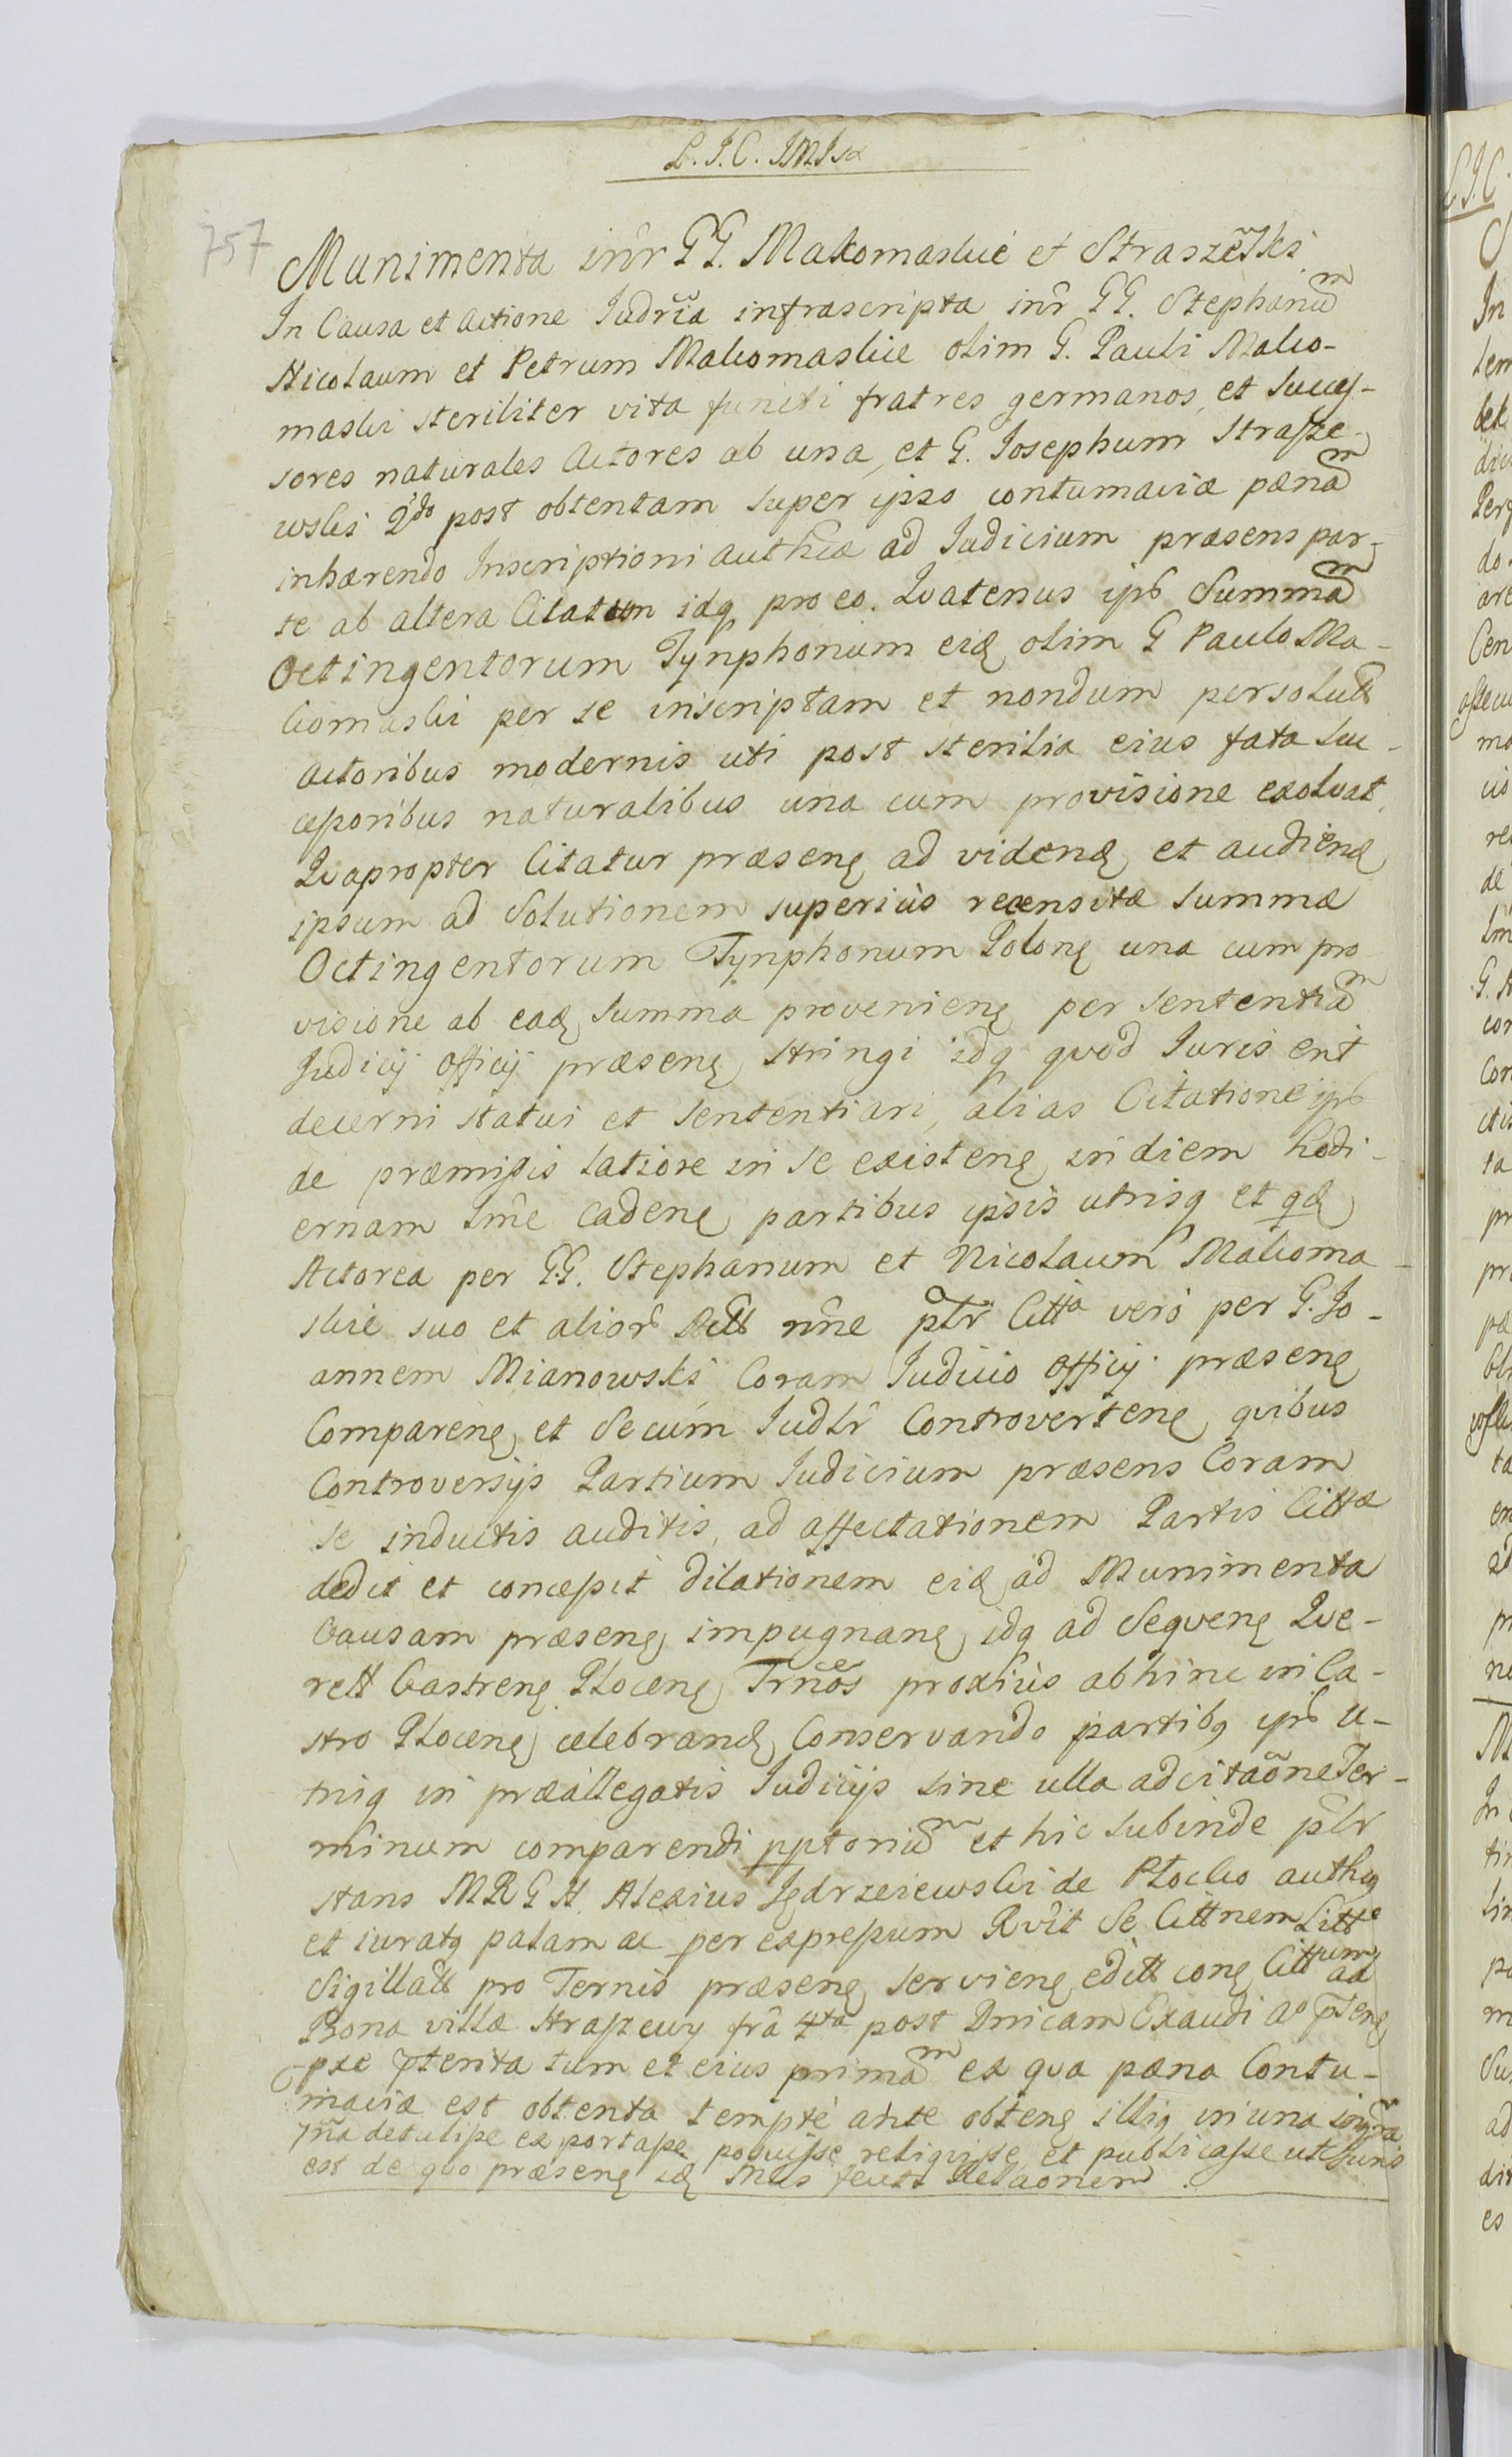 L. J. C. JMJsa
757
Munimenta inr̃ GG. Makomaskie et Straszẽski
In Causa et actione Judr̃ia infrascripta inr̃ GG. Stephanũ
Nicolaum et Petrum Makomaskie olim G. Pauli Mako-
maski steriliter vita functi fratres germanos, et succes-
sores naturales Actores ab una, et G. Josephum Strasze-
wski 2do post obtentam super ipso contumaciæ pænã
inhærendo Inscriptioni authcæ ad Judicium præsens par-
te ab altera Citatum idq pro eo. Qvatenus ips Summã
Octingentorum Tynphonum eid olim G Paulo Ma-
komaski per se inscriptam et nondum persolutt
actoribus modernis uti post sterilia eius fata suc-
cessoribus naturalibus una cum provisione exolvat,
Qvapropter Citatur præsen ad viden et audien
ipsum ad Solutionem superius recensitæ Summæ
Octingentorum Tynphonum Polon una cum pro
visione ab ead Summa provenien per Sententiã
Judicij Officij præsen stringi idq qvod Juris erit
decerni statui et Sententiari, alias Citatione ips
de præmissis latiore in se existen in diem hodi-
ernam lm̃e caden partibus ipsis utrisq et qd
Actorea per G.G. Stephanum et Nicolaum Makoma-
skie suo et alior Actt nñe plr̃ Citta vero per G. Jo-
annem Mianowski Coram Judicio Officij præsen
Comparen et Secum Judlr̃ Controverten, qvibus
Controversijs Partium Judicium præsens Coram
se inductis auditis, ad affectationem Partis Cittæ
dedit et concessit dilationem eid ad Munimenta
Causam præsen impugnan idq ad Seqven Qve-
rell Castren Plocen Trños proxius abhinc in Ca-
stro Plocen celebrand Conservando partibq ips u-
trisq in præallegatis Judicijs sine ulla adcitaõne Ter-
minum comparendi pptoriũ et hic subinde plr̃
stans MRGH. Alexius Jędrzeiewski de Płocko authq
et juratq palam ac per expressum Rvit Se Cittnem Litte
Sigillatt pro Ternis præsen servien editt con Cittum ad
Bona villæ Straszewy frã 4ta post Dnicam Exaudi Ao pten
pxe pterita tum et eius primã ex qva pæna Contu-
maciæ est obtenta tempe ante obten illiq in una
detulisse exportasse posuisse reliqvisse et publicasse uti Juris
est de qvo præsen id Mus fecit Relaõnem.